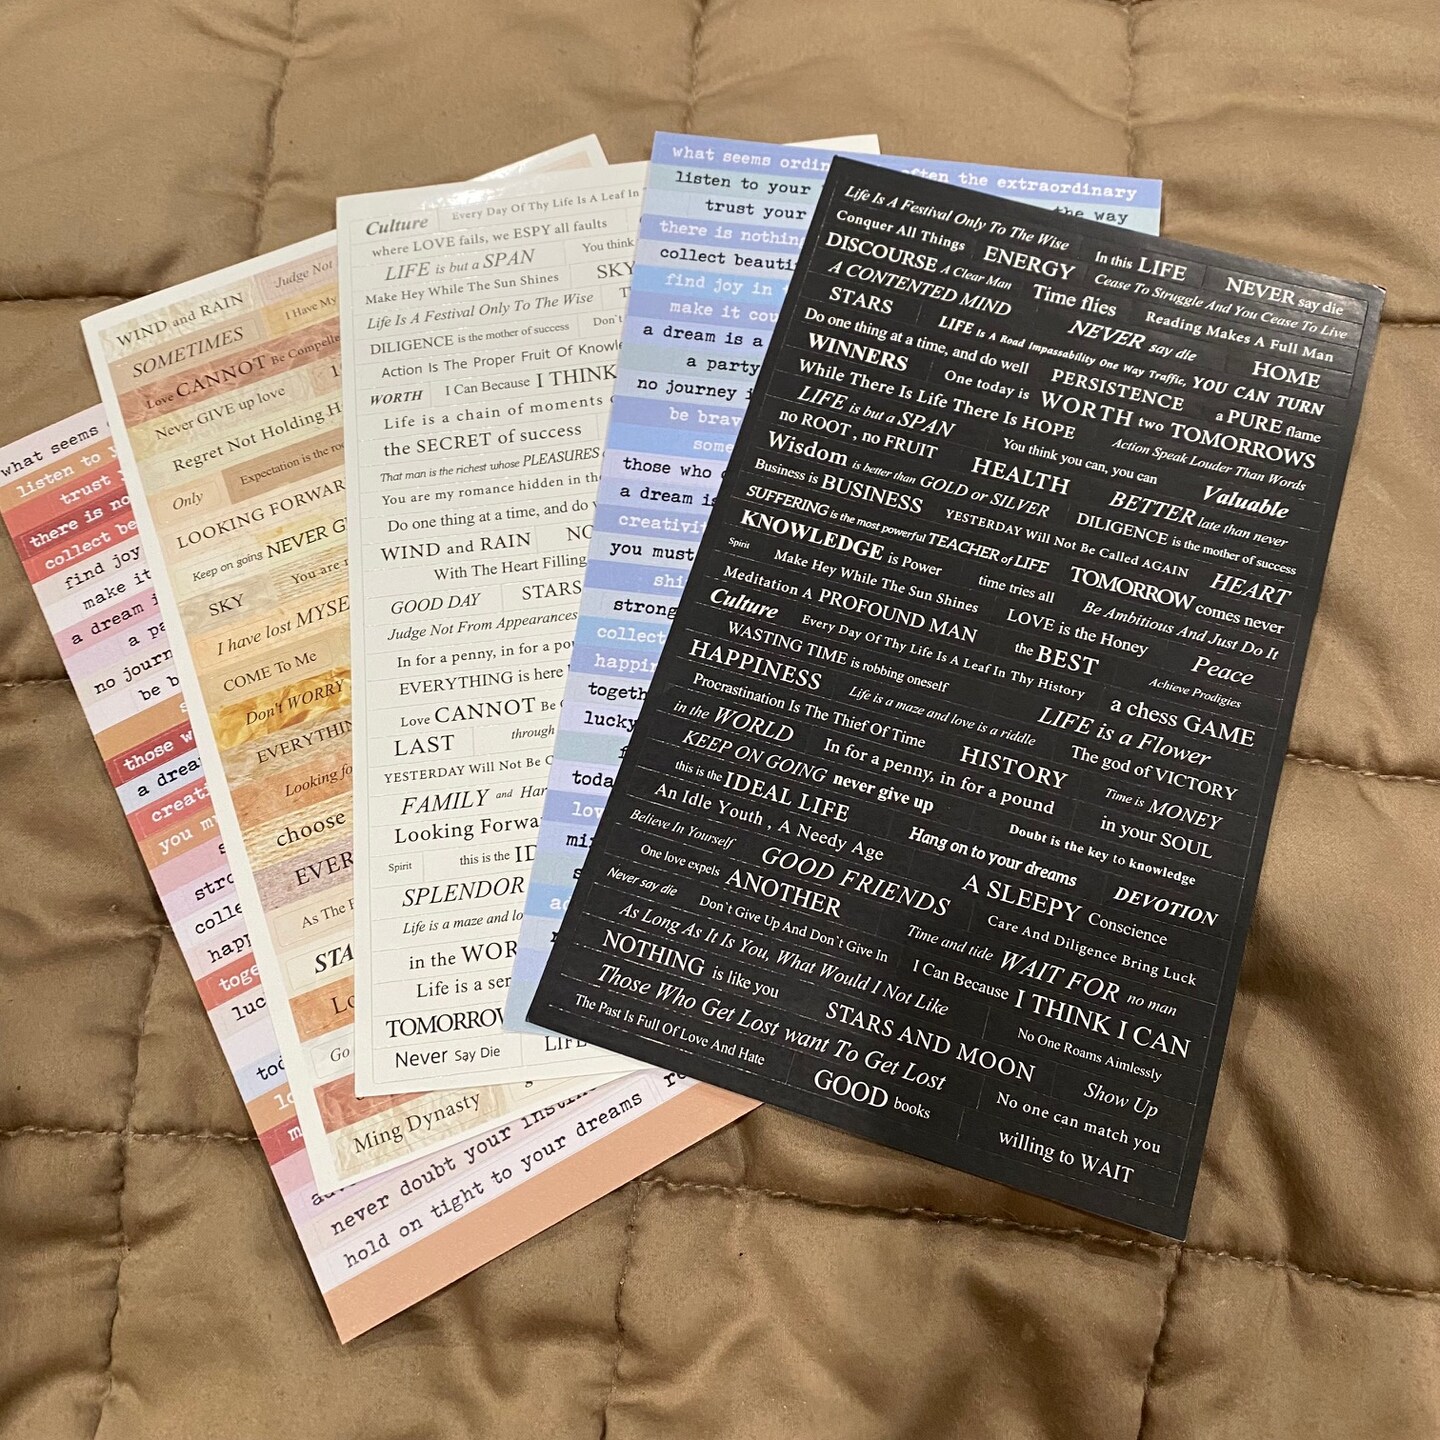 what seems
listen to y
trust y
there is no
collect be
find joy
make it
a dream i
a pa
no journ
be b
s
those w
a drea
creati
you mu
s
stro
colle
happ
toge
luc
tod
lo
m
ad
never doubt your instin
never doubt your
hold on tight to your dreams
WIND and RAIN
Judge Not
SOMETIMES
I Have My
Love CANNOT Be Compelle
Never GIVE up love
Regret Not Holding H
Only
Expectation is the roo
LOOKING FORWAR
Keep on going NEVER G
You are
SKY
I have lost MYSE
COME To Me
Don't WORRY
EVERYTHIN
Looking fo
choose
EVER
As The
STA
Lo
Go
Ming Dynasty
Culture
Every Day Of Thy Life Is A Leaf In
where LOVE fails, we ESPY all faults
LIFE is but a SPAN
You think
Make Hey While The Sun Shines
SKY
Life Is A Festival Only To The Wise
DILIGENCE is the mother of success
Don't
Action Is The Proper Fruit Of Knowle
WORTH
I Can Because I THINK
Life is a chain of moments
the SECRET of success
That man is the richest whose PLEASURES
You are my romance hidden in the
Do one thing at a time, and do
WIND and RAIN
NO
With The Heart Filling
GOOD DAY
STARS
Judge Not From Appearances
In for a penny, in for a po
EVERYTHING is here
Love CANNOT Be
LAST
through
YESTERDAY Will Not Be C
FAMILY and Har
Looking Forwa
Spirit
this is the ID
SPLENDOR
Life is a maze and lo
in the WOR
Life is a ser
TOMORROW
Never Say Die
LIFE
what seems ordin
often the extraordinary
listen to your
the way
trust your
there is nothing
collect beauti
find joy in
make it cou
a dream is a
a party
no journey i
be brav
some
those who
a dream is
creativit
you must
shi
strong
collect
happin
togeth
lucky
f
toda
lov
min
s
ad
Life Is A Festival Only To The Wise
Conquer All Things
ENERGY
In this LIFE
NEVER say die
DISCOURSE A Clear Man
Time flies
Cease To Struggle And You Cease To Live
A CONTENTED MIND
NEVER say die
Reading Makes A Full Man
STARS
LIFE Is A Road Impassability One Way Traffic, YOU CAN TURN
HOME
Do one thing at a time, and do well
PERSISTENCE
a PURE flame
WINNERS
One today is WORTH two TOMORROWS
While There Is Life There Is HOPE
Action Speak Louder Than Words
LIFE is but a SPAN
You think you can, you can
Valuable
no ROOT , no FRUIT
HEALTH
BETTER late than never
Wisdom is better than GOLD or SILVER
DILIGENCE is the mother of success
Business is BUSINESS
YESTERDAY Will Not Be Called AGAIN
HEART
SUFFERING is the most powerful TEACHER of LIFE
TOMORROW comes never
KNOWLEDGE is Power
time tries all
Be Ambitious And Just Do It
Spirit
Make Hey While The Sun Shines
LOVE is the Honey
Peace
Meditation A PROFOUND MAN
the BEST
Achieve Prodigies
Culture
Every Day Of Thy Life Is A Leaf In Thy History
a chess GAME
WASTING TIME is robbing oneself
LIFE is a Flower
HAPPINESS
Life is a maze and love is a riddle
The god of VICTORY
Procrastination Is The Thief Of Time
HISTORY
Time is MONEY
in the WORLD
In for a penny, in for a pound
in your SOUL
KEEP ON GOING never give up
Doubt is the key to knowledge
this is the IDEAL LIFE
Hang on to your dreams
DEVOTION
An Idle Youth , A Needy Age
A SLEEPY Conscience
Believe In Yourself
GOOD FRIENDS
Care And Diligence Bring Luck
One love expels ANOTHER
Time and tide WAIT FOR no man
Never say die
Don't Give Up And Don't Give In
I Can Because I THINK I CAN
As Long As It Is You, What Would I Not Like
No One Roams Aimlessly
NOTHING is like you
STARS AND MOON
Show Up
Those Who Get Lost want To Get Lost
No one can match you
The Past Is Full Of Love And Hate
GOOD books
willing to WAIT